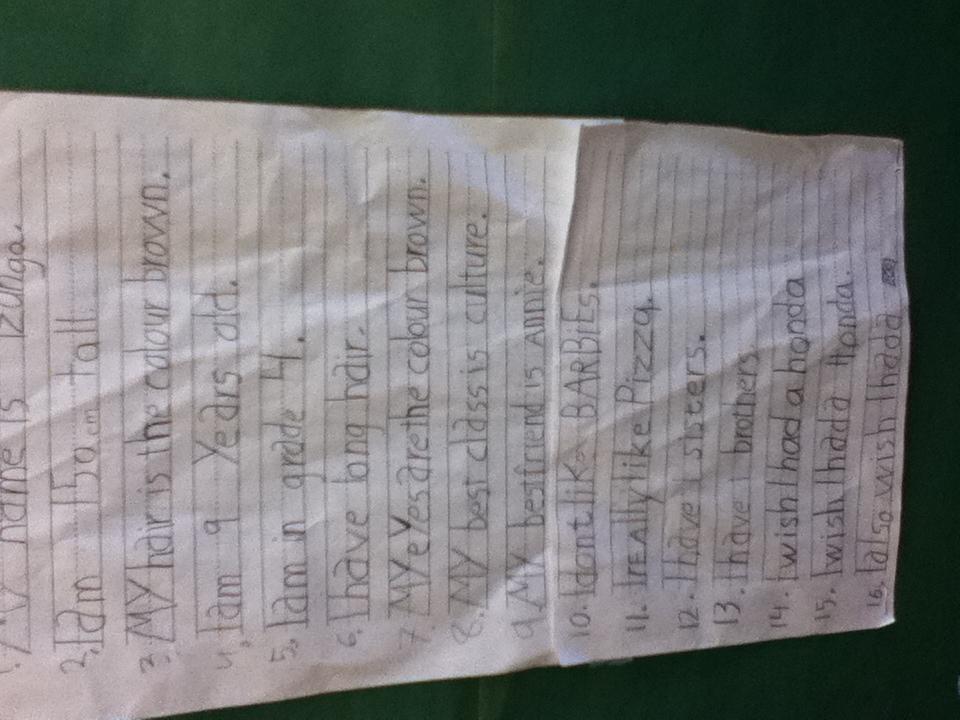 1. My name is Izunga.
2. I am 150 cm tall.
3. MY hair is the colour brown.
4. I am 9 Years old.
5. I am in grade 4.
6. I have long hair.
7. MY eYes are the colour brown.
8. MY best class is culture.
9. My best friend is Annie.
10. I dont like BARBiEs.
11. I rEAlly like Pizza.
12. I have 1 sisters.
13. I have 1 brothers
14. I wish I had a honda
15. I wish I had a Honda.
16. I also wish I had a